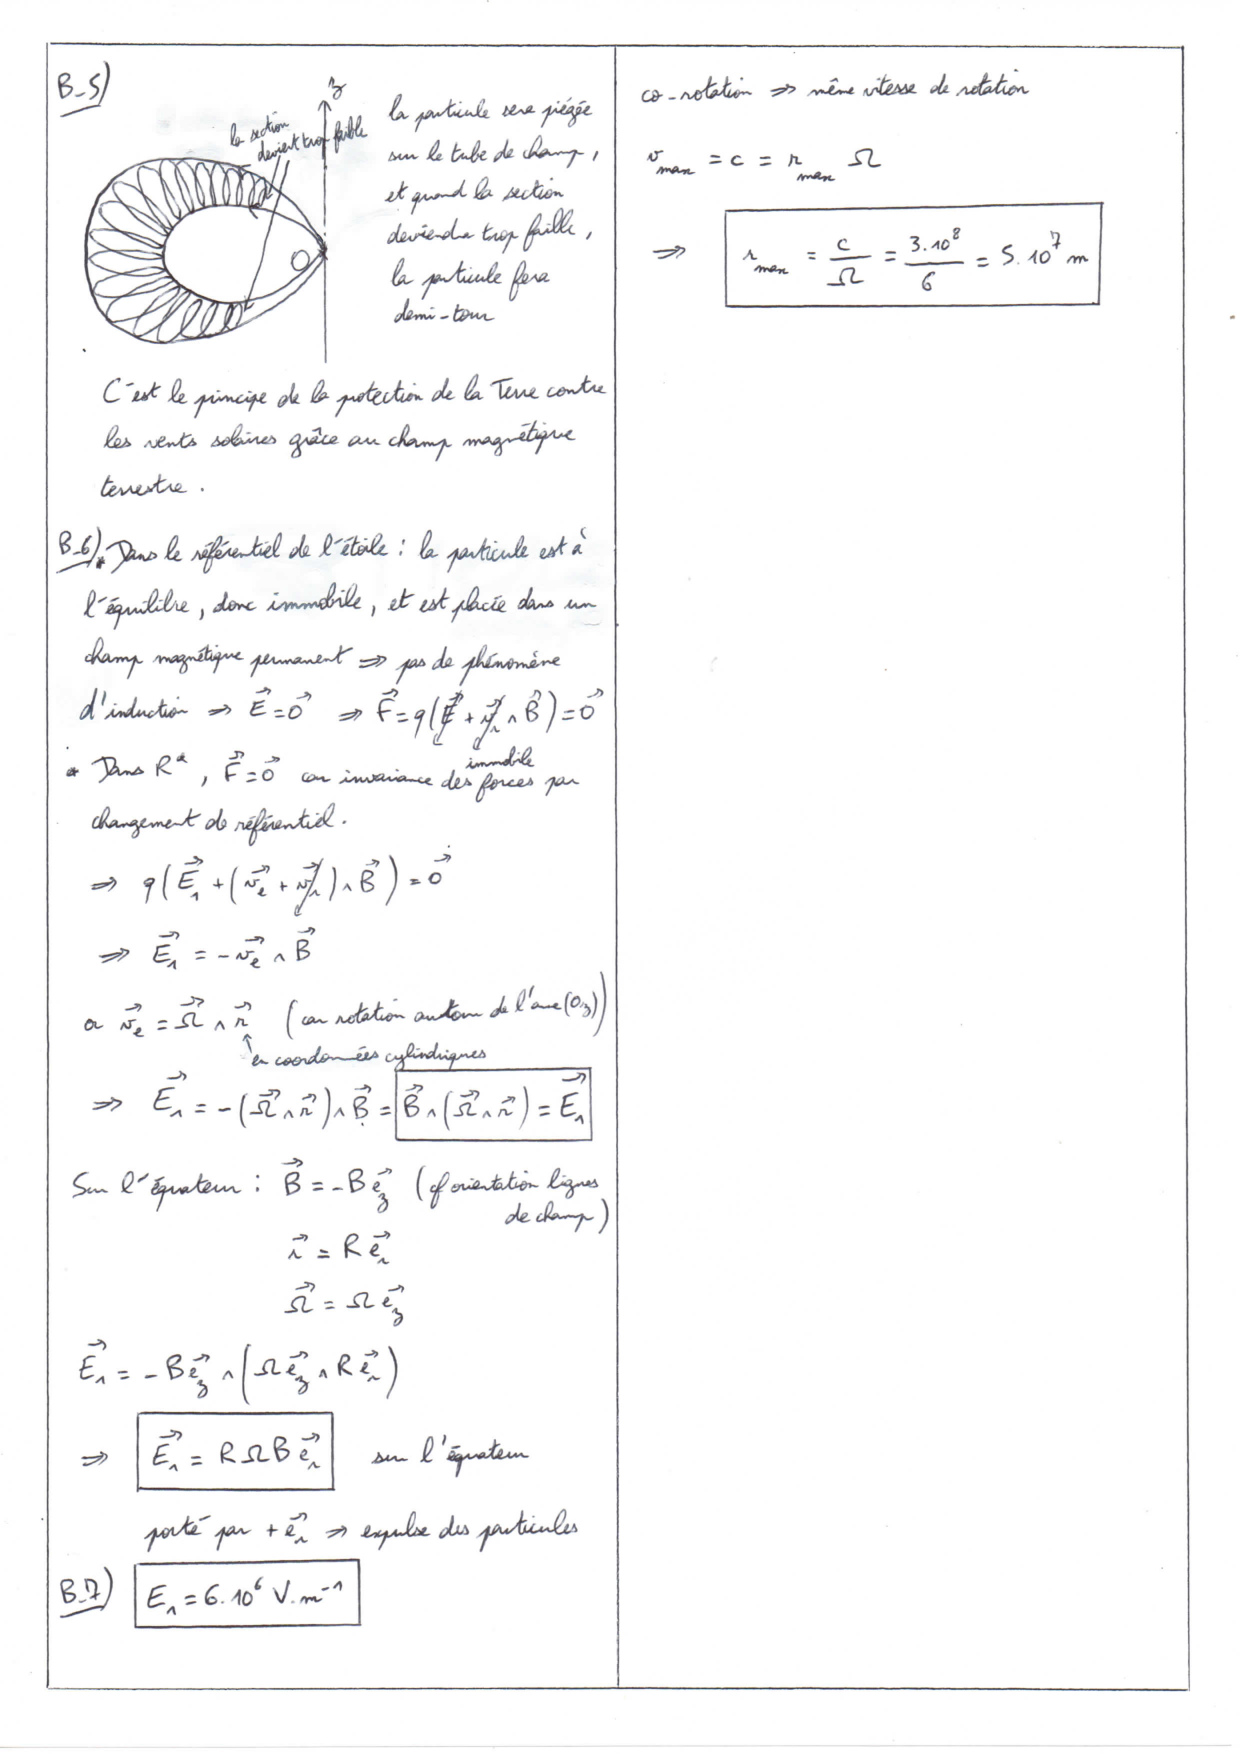 B-5)
z
la section
devient trop faible
la particule sera piégée
sur le tube de champ,
et quand la section
deviendra trop faible,
la particule fera
demi-tour
O
C'est le principe de la protection de la Terre contre
les vents solaires grâce au champ magnétique
terrestre.
B-6) * Dans le référentiel de l'étoile : la particule est à
l'équilibre, donc immobile, et est placée dans un
champ magnétique permanent ⇒ pas de phénomène
d'induction ⇒ E⃗ = 0⃗ ⇒ F⃗ = q(E⃗ + v⃗r ∧ B⃗) = 0⃗
immobile
* Dans R*, F⃗ = 0⃗ car invariance des forces par
changement de référentiel.
⇒ q(E⃗1 + (v⃗e + v⃗r) ∧ B⃗) = 0⃗
⇒ E⃗1 = - v⃗e ∧ B⃗
or v⃗e = Ω⃗ ∧ r⃗ (car rotation autour de l'axe (Oz))
↑ en coordonnées cylindriques
⇒ E⃗1 = - (Ω⃗ ∧ r⃗) ∧ B⃗ = B⃗ ∧ (Ω⃗ ∧ r⃗) = E⃗1
Sur l'équateur : B⃗ = - B e⃗z (cf orientation lignes
de champ)
r⃗ = R e⃗r
Ω⃗ = Ω e⃗z
E⃗1 = - B e⃗z ∧ (Ω e⃗z ∧ R e⃗r)
⇒ E⃗1 = R Ω B e⃗r sur l'équateur
porté par + e⃗r ⇒ expulse des particules
B-7) E1 = 6.10⁶ V.m⁻¹
co-rotation ⇒ même vitesse de rotation
vmax = c = rmax Ω
⇒ rmax = c/Ω = 3.10⁸/6 = 5.10⁷ m